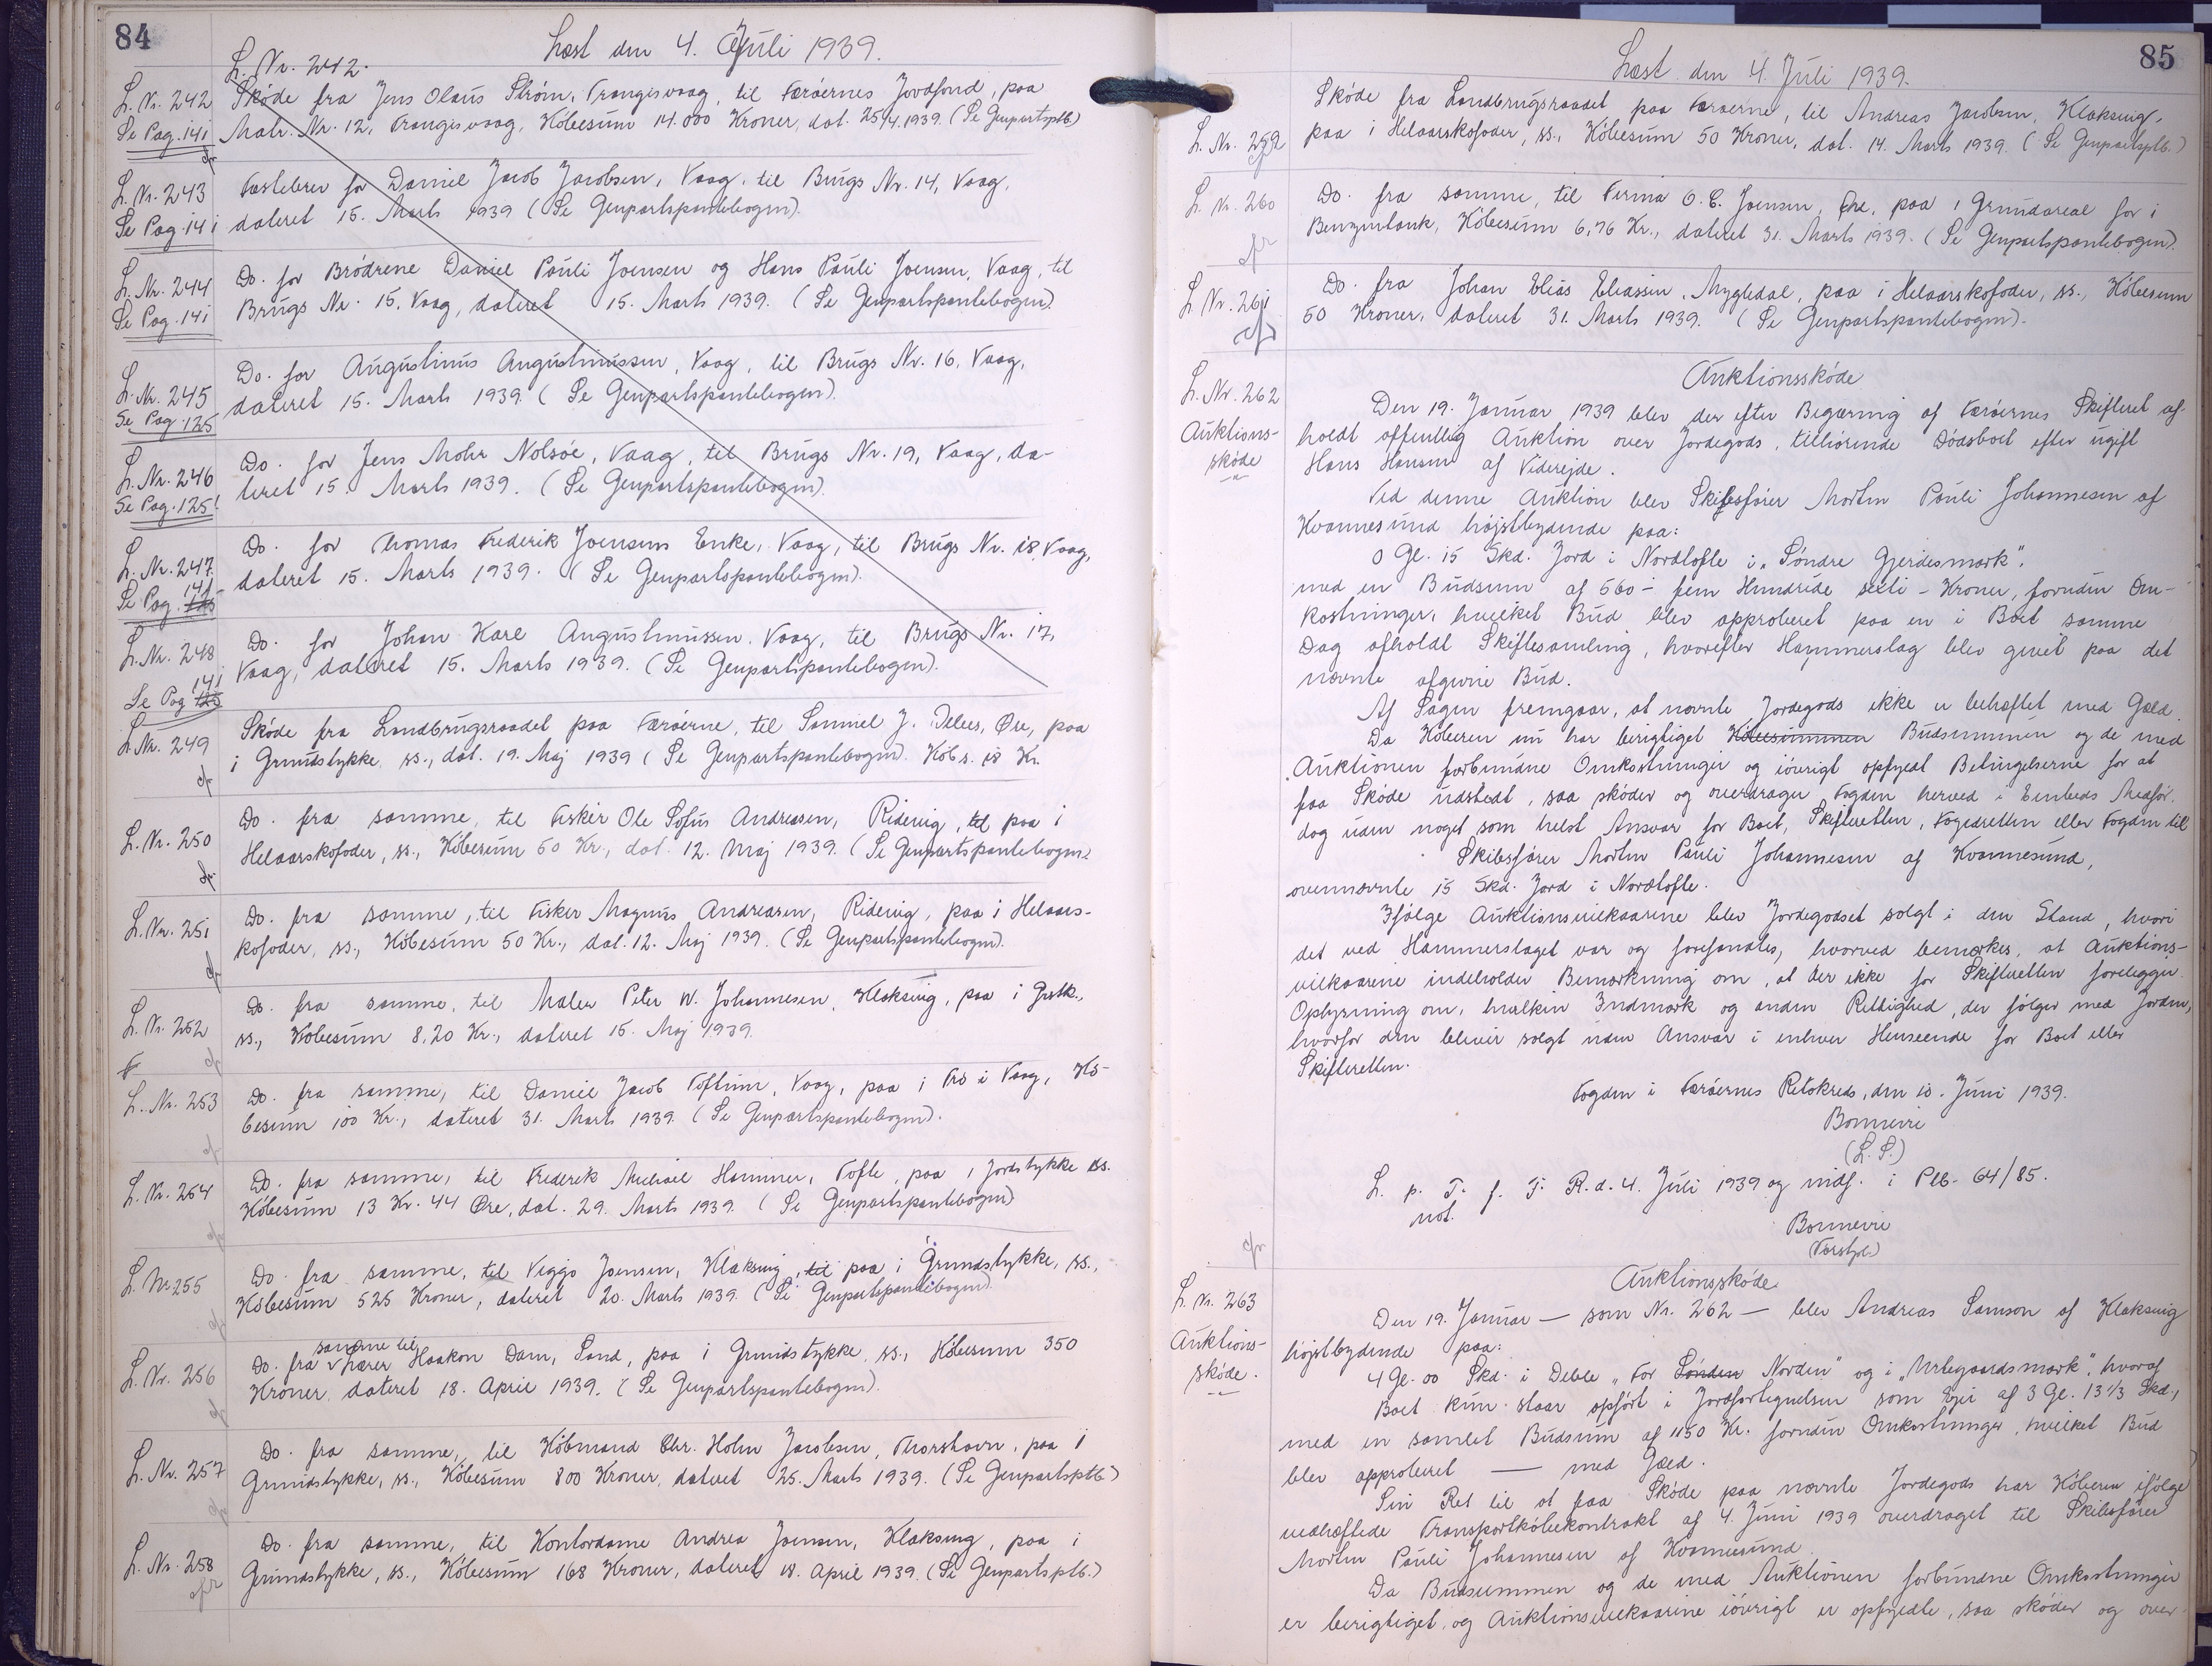 84
Læst den 4. Juli 1939.
L. Nr. 242.
L. Nr. 242 Skóde fra Jens Olaus Strøm, Trangisvaag, til Færøernes Jordfond, paa
Se Pag. 141 Matr. Nr. 12, Trangisvaag, Kóbesum 14.000 Kroner, dat. 25/4.1939. (Se Genpartsptb.)
L. Nr. 243 Fæstebrev for Daniel Jacob Jacobsen, Vaag, til Brugs Nr. 14, Vaag,
Se Pag. 141 dateret 15. Marts 1939 (Se Genpartspantebogen).
L. Nr. 244 Do. for Bródrene Daniel Pauli Joensen og Hans Pauli Joensen, Vaag, til
Se Pag. 141 Brugs Nr. 15, Vaag, dateret 15. Marts 1939. (Se Genpartspantebogen).
L. Nr. 245 Do. for Augustinus Augustinussen, Vaag, til Brugs Nr. 16, Vaag,
Se Pag. 125 dateret 15. Marts 1939. (Se Genpartspantebogen).
L. Nr. 246 Do. for Jens Mohr Nolsóe, Vaag, til Brugs Nr. 19, Vaag, da-
Se Pag. 125 teret 15. Marts 1939. (Se Genpartspantebogen).
L. Nr. 247 Do. for Thomas Frederik Joensens Enke, Vaag, til Brugs Nr. 18, Vaag,
141
Se Pag. 125 dateret 15. Marts 1939. (Se Genpartspantebogen).
L. Nr. 248 Do. for Johan Karl Augustinussen, Vaag, til Brugs Nr. 17,
141
Se Pag 125 Vaag, dateret 15. Marts 1939. (Se Genpartspantebogen).
L. Nr. 249 Skóde fra Landbrugsraadet paa Færóerne, til Samuel J. Debes, Øre, paa
1 Grundstykke, ss., dat. 19. Maj 1939 (Se Genpartspantebogen). Kóbs. 18 Kr.
L. Nr. 250 Do. fra samme, til Fisker Ole Sofus Andreasen, Ridevig, til paa 1
Helaarskofoder, ss., Kóbesum 50 Kr., dat. 12. Maj 1939. (Se Genpartspantebogen.)
L. Nr. 251 Do. fra samme, til Fisker Magnus Andreasen, Ridevig, paa 1 Helaars-
kofoder, ss., Kóbesum 50 Kr., dat. 12. Maj 1939. (Se Genpartspantebogen).
L. Nr. 252 Do. fra samme, til Maler Peter W. Johannesen, Klaksvig, paa 1 Grstk.,
ss., Kóbesum 8,20 Kr., dateret 15. Maj 1939.
L. Nr. 253 Do. fra samme, til Daniel Jacob Toftum, Vaag, paa 1 Tró i Vaag, Kó-
besum 100 Kr., dateret 31. Marts 1939. (Se Genpartspantebogen).
L. Nr. 254 Do. fra samme, til Frederik Michael Hammer, Tofte, paa 1 Jordstykke ss.
Kóbesum 13 Kr. 44 Øre, dat. 29. Marts 1939. (Se Genpartspantebogen)
L. Nr. 255 Do. fra samme, til Viggo Joensen, Klaksvig, til paa 1 Grundstykke, ss.,
Kóbesum 525 Kroner, dateret 20. Marts 1939. (Se Genpartspantebogen).
samme til
L. Nr. 256 Do. fra Lærer Haakon Dam, Sand, paa 1 Grundstykke, ss., Kóbesum 350
Kroner, dateret 18. April 1939. (Se Genpartspantebogen).
L. Nr. 257 Do. fra samme, til Kóbmand Chr. Holm Jacobsen, Thorshavn, paa 1
Grundstykke, ss., Kóbesum 800 Kroner, dateret 25. Marts 1939. (Se Genpartsptb.)
L. Nr. 258 Do. fra samme, til Kontordame Andrea Joensen, Klaksvig, paa 1
Grundstykke, ss., Kóbesum 168 Kroner, dateret 18. April 1939. (Se Genpartsptb.)
85
Læst den 4. Juli 1939.
Skóde fra Landbrugsraadet paa Færøerne, til Andreas Jacobsen, Klaksvig,
L. Nr. 259 paa 1 Helaarskofoder, ss., Kóbesum 50 Kroner, dat. 14. Marts 1939. (Se Genpartsptb.)
L. Nr. 260 Do. fra samme, til Firma O. C. Joensen, Øre, paa 1 Grundareal for 1
Benzintank, Kóbesum 6,76 Kr., dateret 31. Marts 1939. (Se Genpartspantebogen).
L. Nr. 261 Do. fra Johan Elias Eliassen, Mygledal, paa 1 Helaarskofoder, ss., Kóbesum
50 Kroner, dateret 31. Marts 1939. (Se Genpartspantebogen).
L. Nr. 262 Auktionsskóde
Auktions-
skóde
Den 19. Januar 1939 blev der efter Begæring af Færóernes Skifteret af-
holdt offentlig Auktion over Jordegods, tilhórende Dódsboet efter ugift
Hans Hansen af Viderejde.
Ved denne Auktion blev Skibsfórer Morten Pauli Johannesen af
Kvannesund højstbydende paa:
0 Gl. 15 Skd. Jord i Nordtofte i "Sóndre Gjerdesmark".
med en Budsum af 560 – fem Hundrede seksti – Kroner, foruden Om-
kostninger, hvilket Bud blev approberet paa en i Boet samme
Dag afholdt Skiftesamling, hvorefter Hammerslag blev givet paa det
nævnte afgivne Bud.
Af Sagen fremgaar, at nævnte Jordegods ikke er behæftet med Gæld.
Da Kóberen nu har berigtiget Kóbesummen Budsummen og de med
Auktionen forbundne Omkostninger og ióvrigt opfyldt Betingelserne for at
faa Skóde udstedt, saa skóder og overdrager Fogden herved i Embeds Medfór,
dog uden noget som helst Ansvar for Boet, Skifteretten, Fogedretten eller Fogden til
Skibsfórer Morten Pauli Johannesen af Kvannesund,
ovennævnte 15 Skd. Jord i Nordtofte.
Ifólge Auktionsvilkaarene blev Jordegodset solgt i den Stand, hvori
det ved Hammerslaget var og forefandtes, hvorved bemærkes, at Auktions-
vilkaarene indeholder Bemærkning om, at der ikke for Skifteretten foreligger
Oplysning om, hvilken Indmark og anden Rettighed, der fólger med Jorden,
hvorfor den bliver solgt uden Ansvar i enhver Henseende for Boet eller
Skifteretten.
Fogden i Færóernes Retskreds, den 10. Juni 1939.
Bonnevie
(L. S.)
L. p. T. f. F. R. d. 4. Juli 1939 og indf. i Ptb. 64/85.
not.
Bonnevie
L. Nr. 263 Auktionsskóde
Auktions-
skóde.
Den 19. Januar — som Nr. 262 — blev Andreas Samson af Klaksvig
højstbydende paa:
4 Gl. 00 Skd. i Deble "For Sónden Norden" og i "Urtegaardsmark", hvoraf
Boet kun staar opfórt i Jordfortegnelsen som Ejer af 3 Gl. 13 1/3 Skd.,
med en samlet Budsum af 1150 Kr. foruden Omkostninger, hvilket Bud
blev approberet — med Gæld.
Sin Ret til at faa Skóde paa nævnte Jordegods har Kóberen ifólge
vedhæftede Transportkóbekontrakt af 4. Juni 1939 overdraget til Skibsfórer
Morten Pauli Johannesen af Kvannesund.
Da Budsummen og de med Auktionen forbundne Omkostninger
er berigtiget, og Auktionsvilkaarene ióvrigt er opfyldte, saa skóder og over-